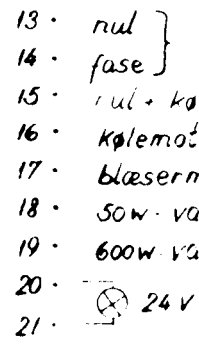 13 · nul
14 · fase
15 · nul + kø
16 · kølemot
17 · blæserm
18 · 50w · va
19 · 600w · va
20 ·
24 V
21 ·